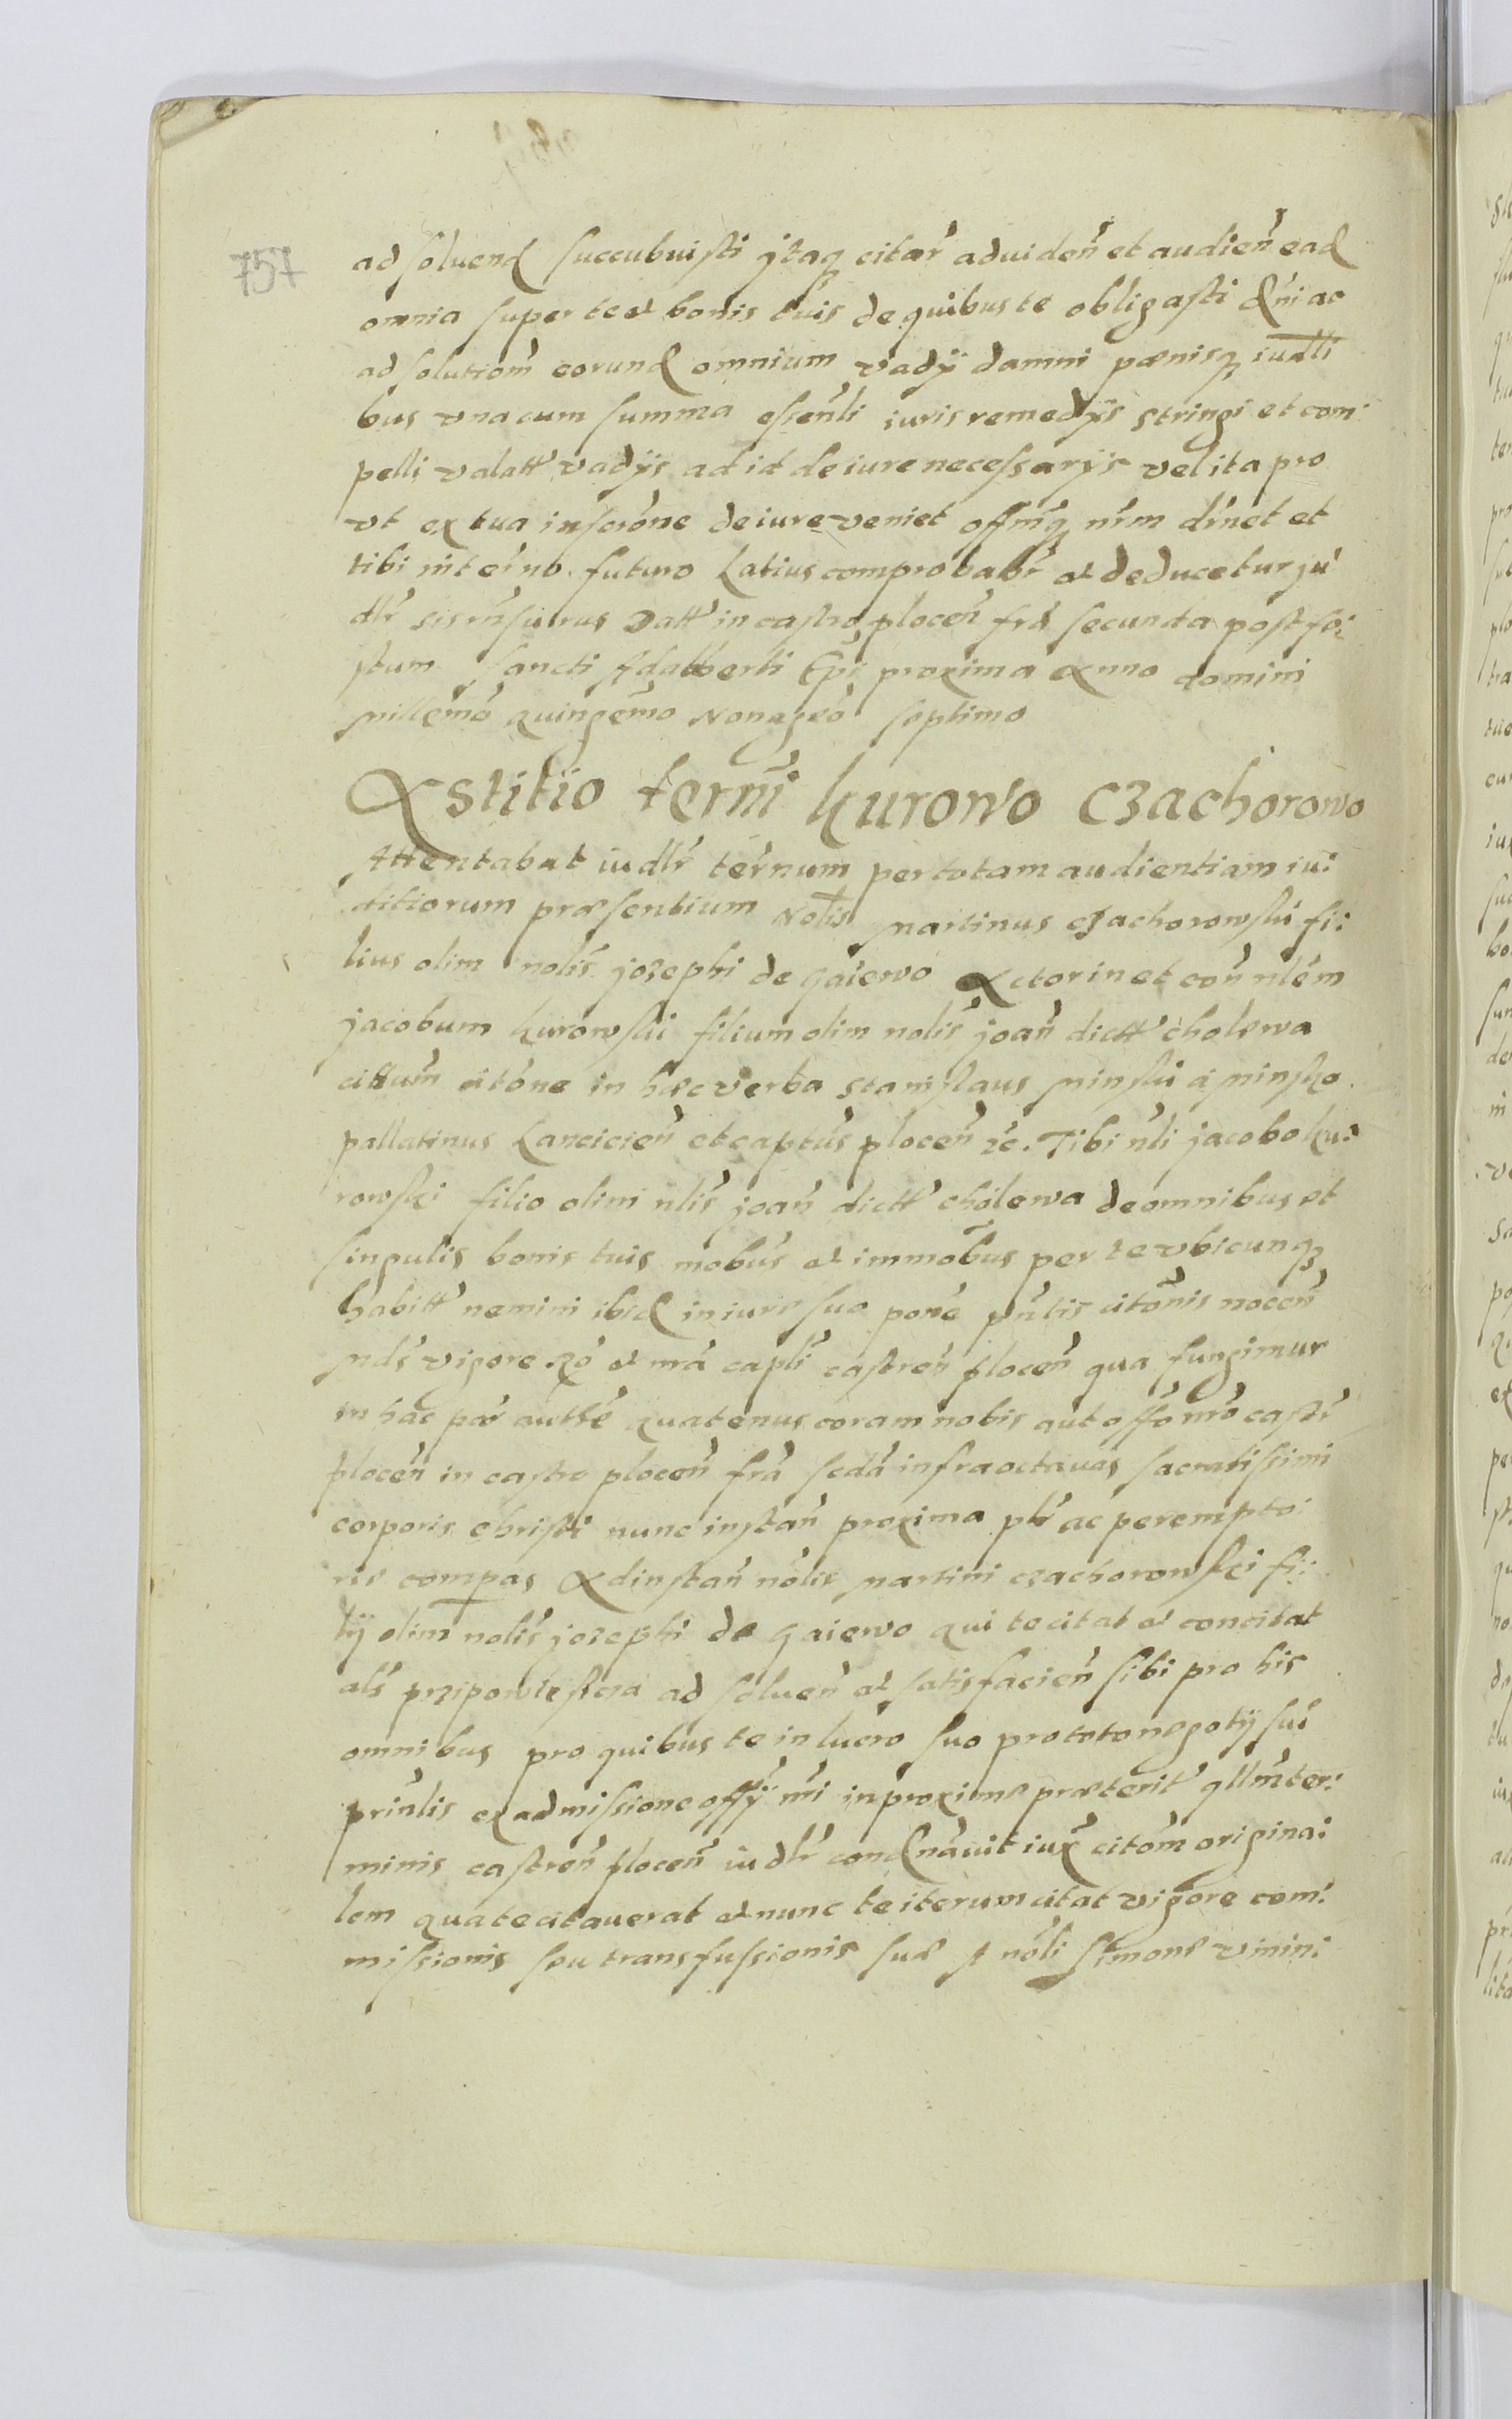 757
ad soluend succubuisti jtaq citar̃ ad uideñ et audieñ ead
omnia super te et bonis tuis de quibus te obligasti d̃ni ac
ad solutiom̃ eorund omnium vadÿ damni pœnisq iudlĩ
bus vna cum summa esseñli iuris remedÿs stringi et com:
pelli valatt̃ vadÿs ad id de iure necessarÿs vel ita pro
vt ex tua inscrõne de iure veniet offm̃q nr̃m dr̃net et
tibi in ter̃no futuro Latius comprobabr̃ et deducetur ju
dlr̃ sis rñsurus Datt̃ in castro ploceñ fr̃a secunda post fe:
stum sancti Adalberti Epĩ proxima Anno domini
Millem̃o quingem̃o Nonageõ septimo
Astitio term̃i kurowo czachorowo
Attentabat iudlr̃ ter̃num per totam audientiam iu:
ditiorum præsentium Nolis̃ Martinus czachorowski fi:
lius olim nolis̃ jozephi de gaiewo Actor in et coñ nlẽm
jacobum kurowski filium olim nolis̃ joañ dictt̃ cholewa
cittum̃ citõne in hæc verba Stanislaus Minski a Minsko
pallatinus Lancicieñ et captũs ploceñ zc̃. Tibi nl̃i jacobo ku:
rowski filio olim nlis̃ joañ dictt̃ cholewa de omnibus et
singulis bonis tuis mobus̃ et immob̃us per te vbicunq
habitt̃ nemini ibid in iure suo pone pñlis citõnis noceñ
Mds̃ vigore Rõ et nr̃a capli castreñ ploceñ qua fungimur
in hac par̃ autthẽ quatenus coram nobis aut offõ nr̃o castr̃
ploceñ in castro ploceñ fr̃a scdã infra octauas sacratissimi
corporis christi nunc instañ proxima plr̃ ac perempto:
rie compas Ad instañ nolis̃ Martini czachorowski fi:
lÿ olim nolis̃ jozephi de gaiewo qui te citat et concitat
als̃ przipowiescza ad soluen̄ et satisfacieñ sibi pro his
omnibus pro quibus te in lucro suo pro toto negotÿ sui
prin̄lis ex admissione offÿ nr̃i in proxime præterit̃ qllm̃ ter:
minis castreñ ploceñ iudlr̃ condnauit iux̃ citom̃ origina:
lem qua te citauerat et nunc te iterum citat vigore com:
missionis seu transfussionis suæ A noli simone vinin: